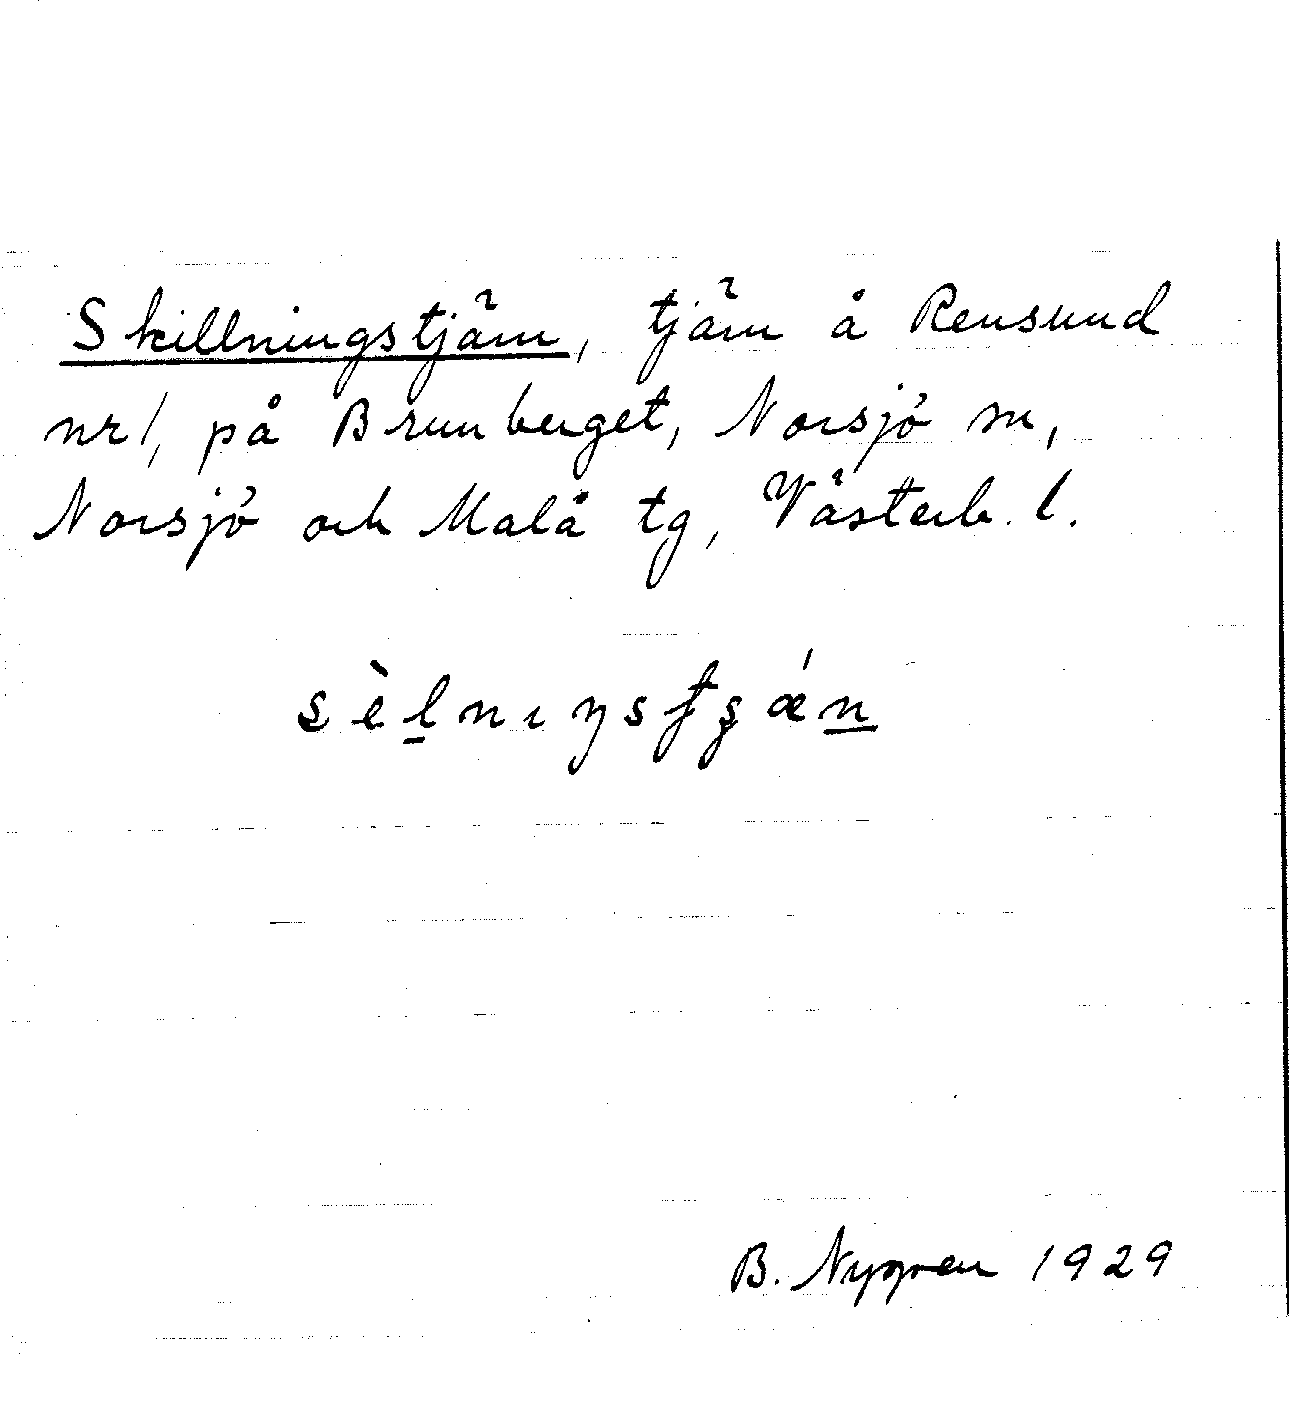 Skillningstjärn, tjärn å Rensund
nr 1, på Brunberget, Norsjö sn,
Norsjö och Malå tg, Västerb. l.
B. Nygren 1929